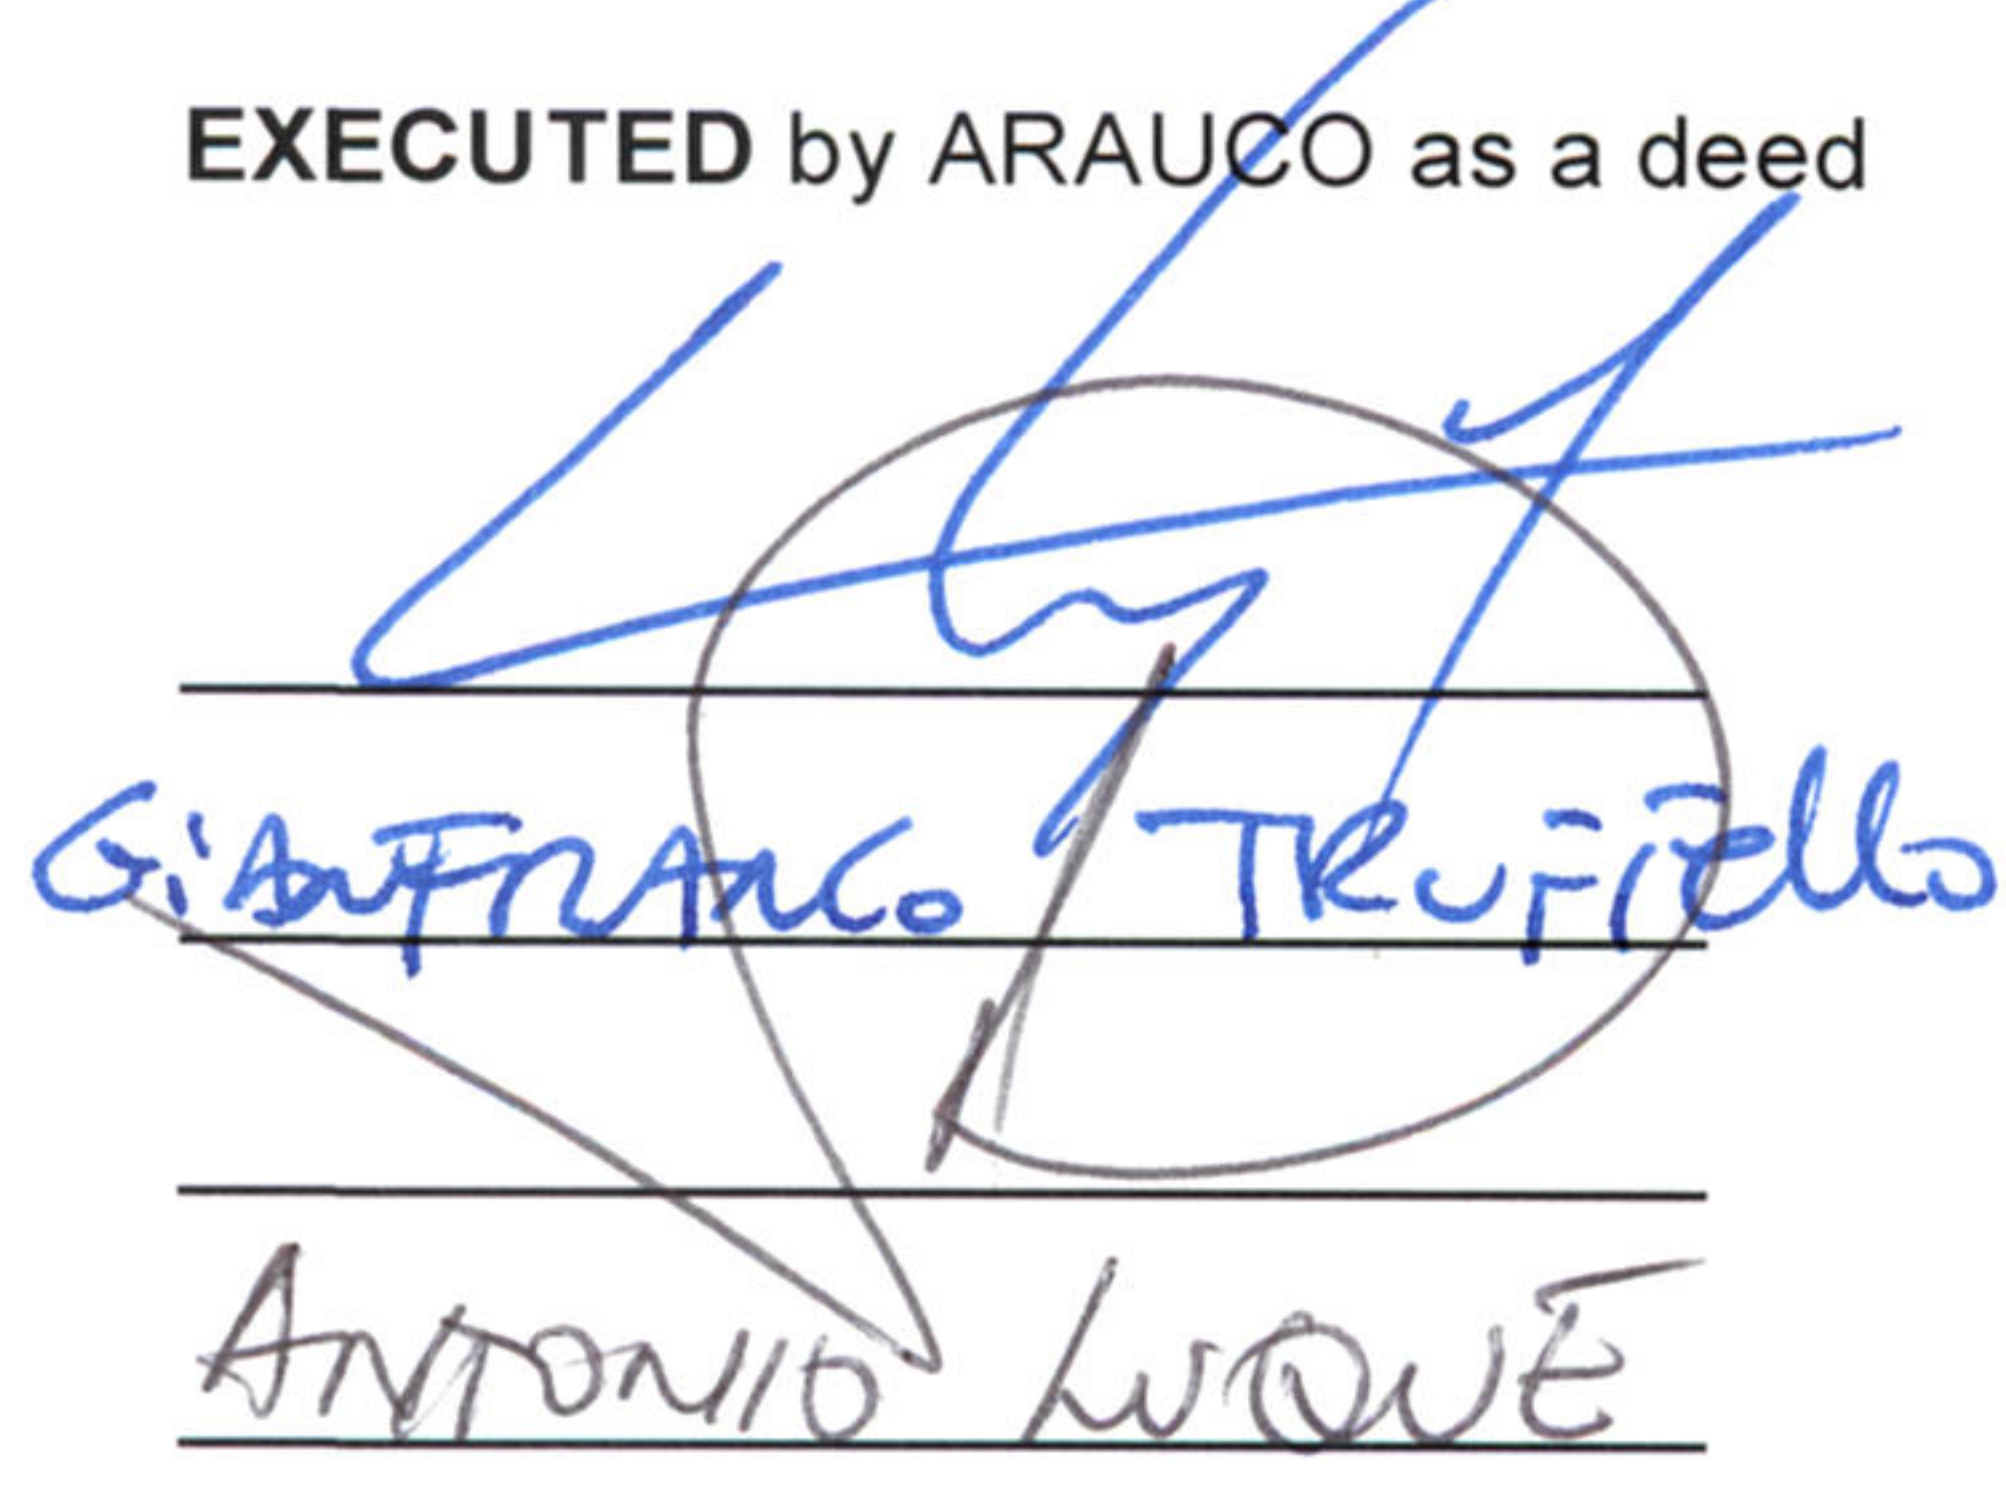 EXECUTED by ARAUCO as a deed
GiANFRANCo TRUFiEllo
ANTONIO LUQUE